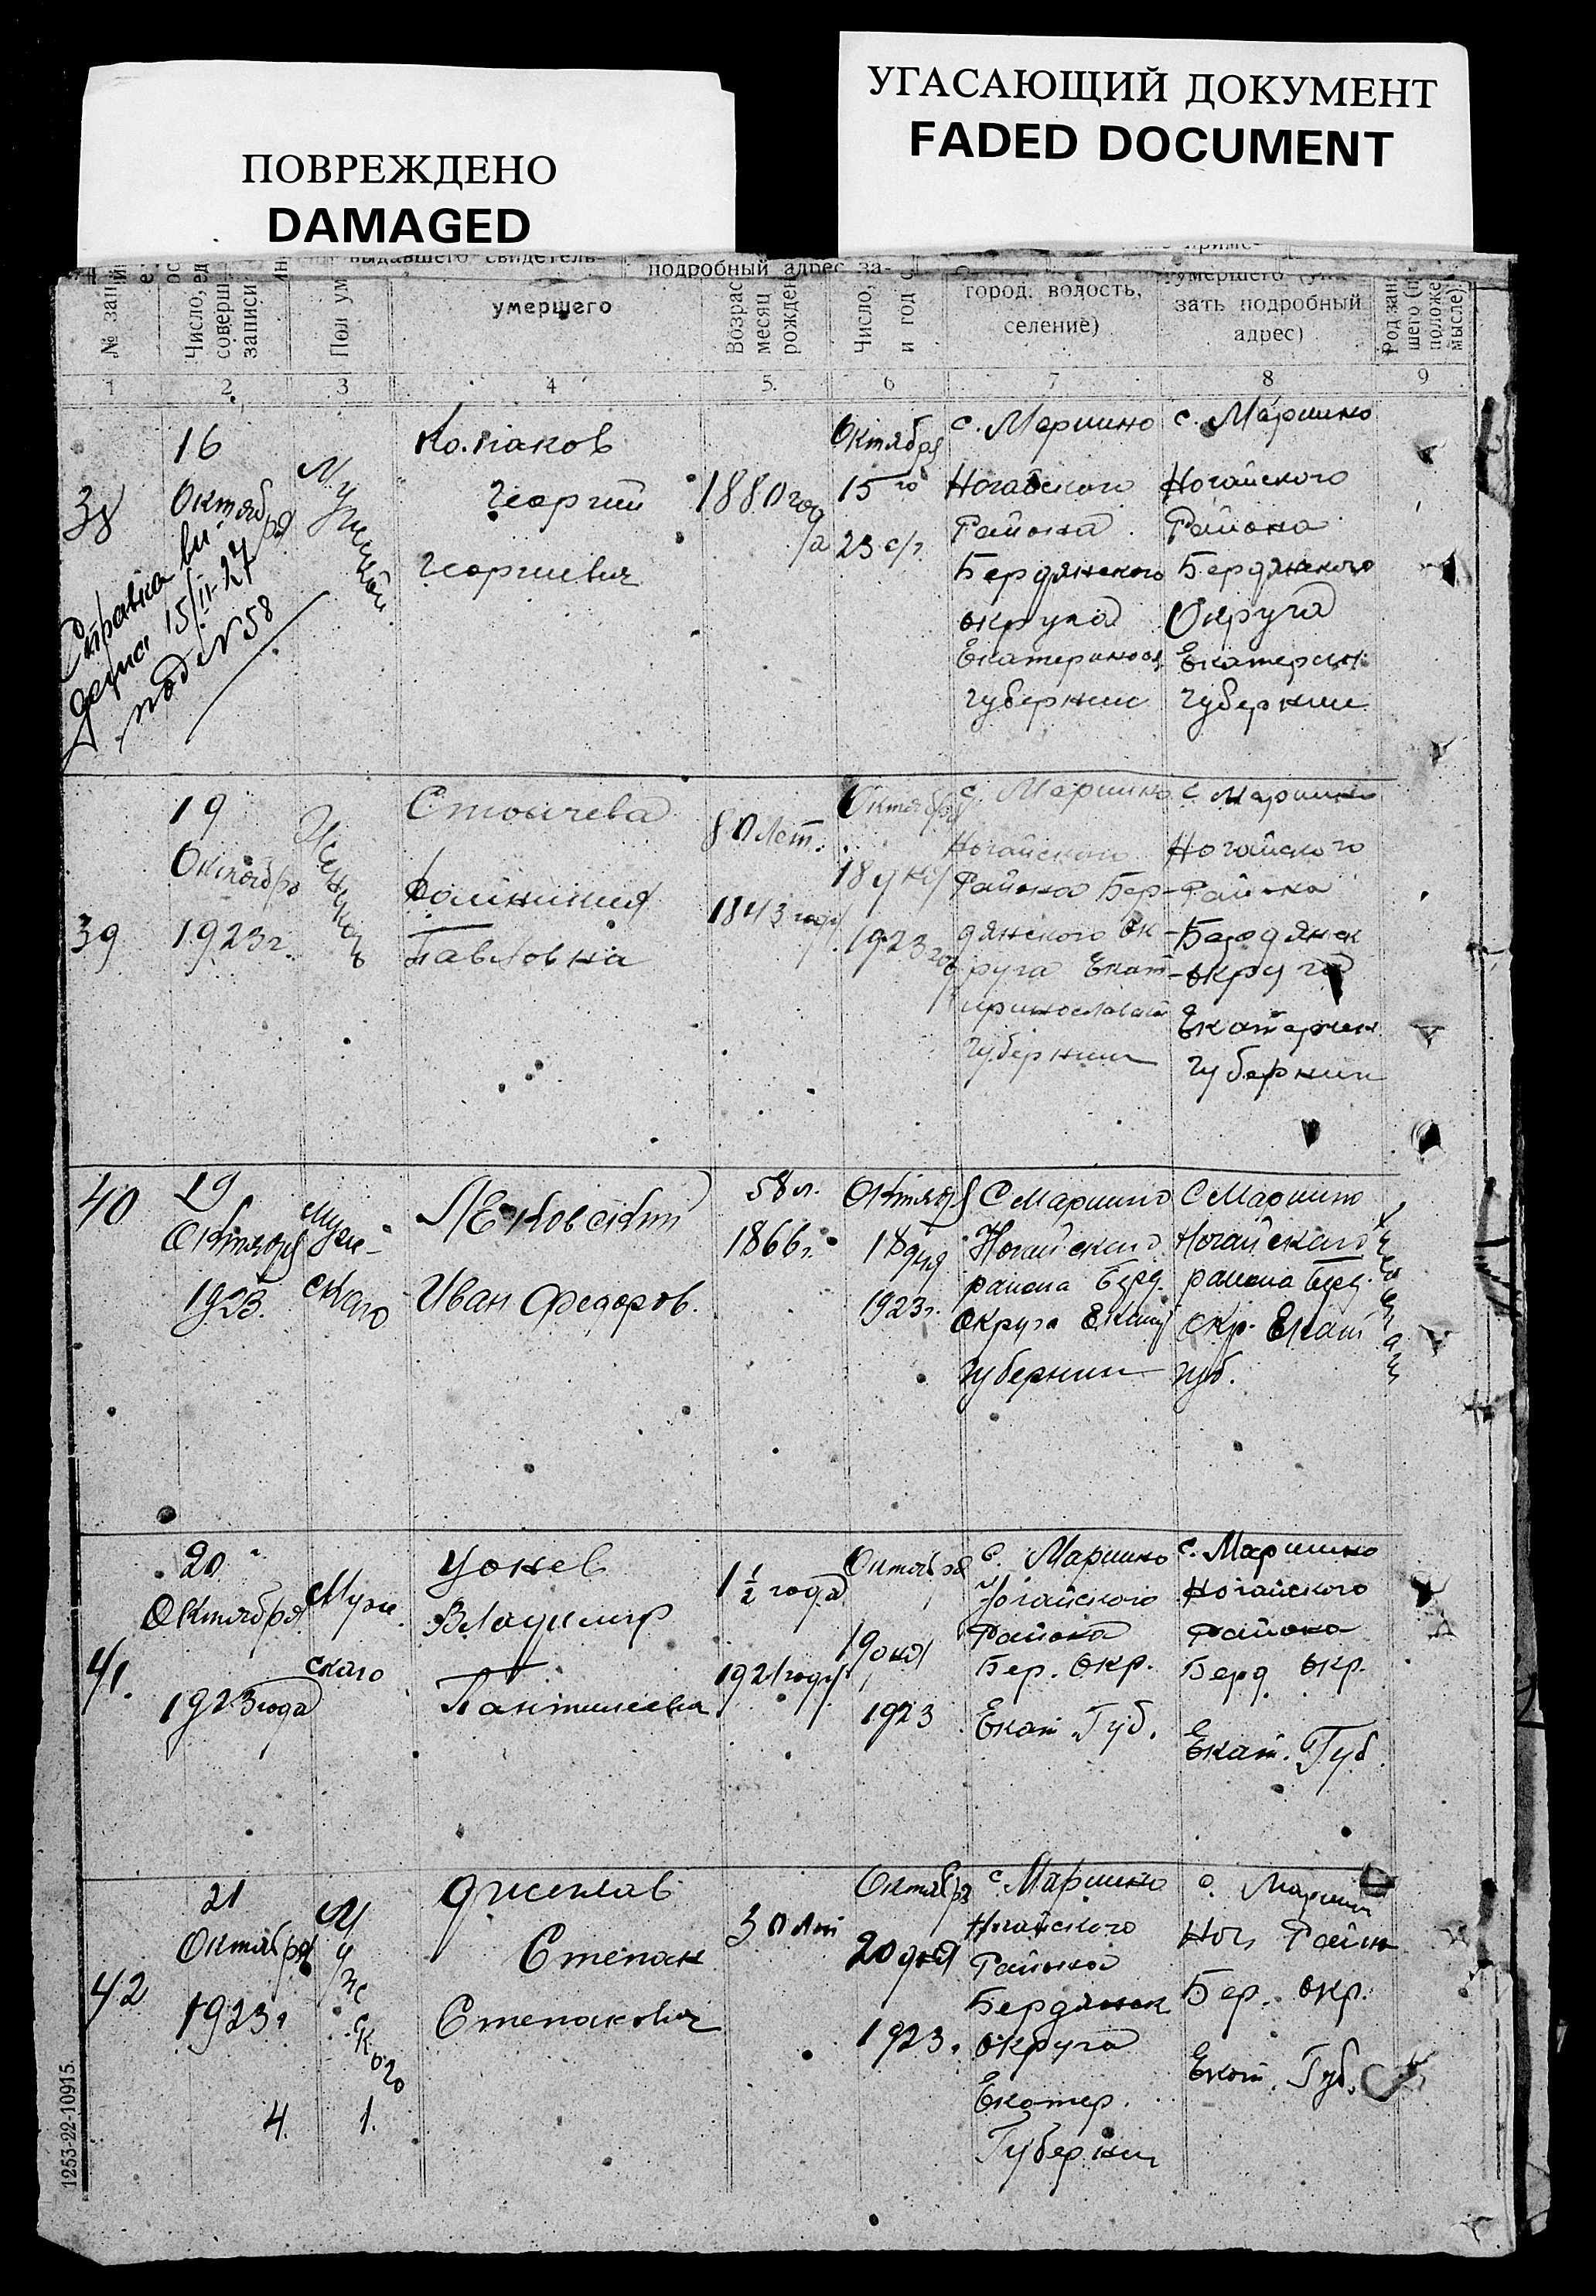 УГАСАЮЩИЙ ДОКУМЕНТ
FADED DOCUMENT
ПОВРЕЖДЕНО
DAMAGED
подробный адрес за-
умершего
город, волость,
селение)
умершего
зать подробный
адрес)
1 2 3 4 5. 6 7 8 9
38
16
Октября
Справка вы
дана 15/II-27
под N 58
Мужской
Колпаков
Георгий
Георгиевич
1880 год
а
Октября
15го
23 с/г
с. Маршино
Ногайского
Района
Бердянского
округа
Екатеринос
губернии
с. Маршино
Ногайского
Района
Бердянского
Округа
Екатерин
губернии
39
19
Октября
1923 г.
Стоичева
Павловна
80 лет.
1843 году
Октября
18 дня
1923 год
с. Маршино
Ногайского
Района Бер-
дянского Ок-
руга Екат-
еринославской
губернии
с Маршино
Ногайского
Района
Бердянск
округа
Екатерин
губернии
40
19
Октября
1923.
Муж-
скаго
Иван Федоров.
58 л.
1866 г.
Октября
18 дня
1923 г.
С Маршино
Ногайскаго
района Берд.
Округа Екат
Губернии
С Маршино
Ногайскаго
района Берд.
Окр. Екат
губ.
41.
20
Октября
1923 года
Муж
скаго
Цонев
Владимир
Пантилеевич
1 1/2 года
1921 году
Октября
19 дня
1923
с. Маршино
Ногайского
Района
Бер. Окр.
Екат. Губ.
с. Маршино
Ногайского
Района
Берд окр.
Екат. Губ
42
21
Октября
1923 г
4.
Мужского
1.
Степан
Степанович
30 лет
Октября
20 дня
1923.
с. Маршино
Ногайского
Района
Бердянск
округа
Екатер.
Губернии
с. Маршин
Ног. Район
Бер. окр.
Екат. Губ.
1253-22-10915.